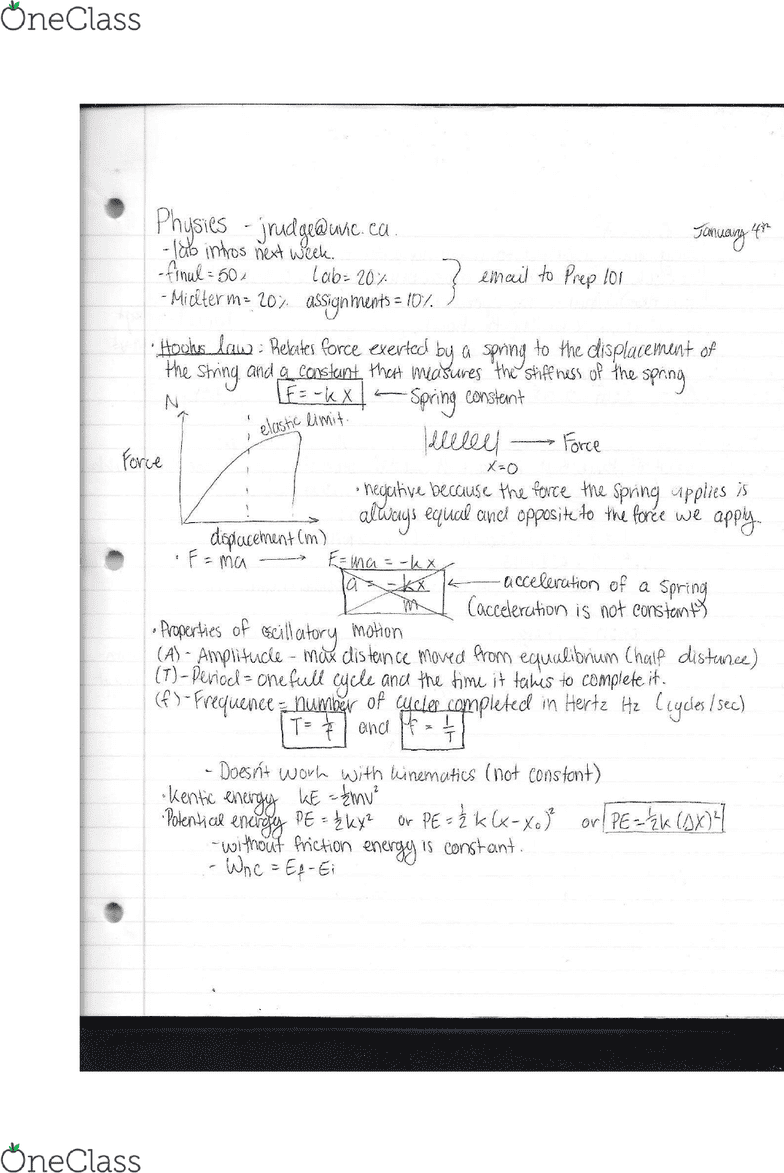 OneClass
Physics - jrudge@uvic.ca.
January 4th
- lab intros next week.
- final = 50% Lab = 20%
- Midterm = 20% assignments = 10%
} email to Prep 101
• Hooks law: Relates force exerted by a spring to the displacement of
the string and a constant that measures the stiffness of the spring
F = -kx ← Spring constant
N
elastic limit.
Force
displacement (m)
→ Force
x=0
• negative because the force the spring applies is
always equal and opposite to the force we apply.
• F = ma → F = ma = -kx
a = -kx/m ← acceleration of a spring
(acceleration is not constant)
• Properties of oscillatory motion
(A) - Amplitude - max distance moved from equalibrium (half distance)
(T) - Period = one full cycle and the time it takes to complete it.
(f) - Frequence = number of cycles completed in Hertz Hz (cycles/sec)
T = 1/f and f = 1/T
- Doesn't work with kinematics (not constant)
• Kentic energy KE = ½mv²
• Potential energy PE = ½kx² or PE = ½k(x-x₀)² or PE = ½k(Δx)²
- without friction energy is constant.
- Wnc = Ef - Ei
OneClass